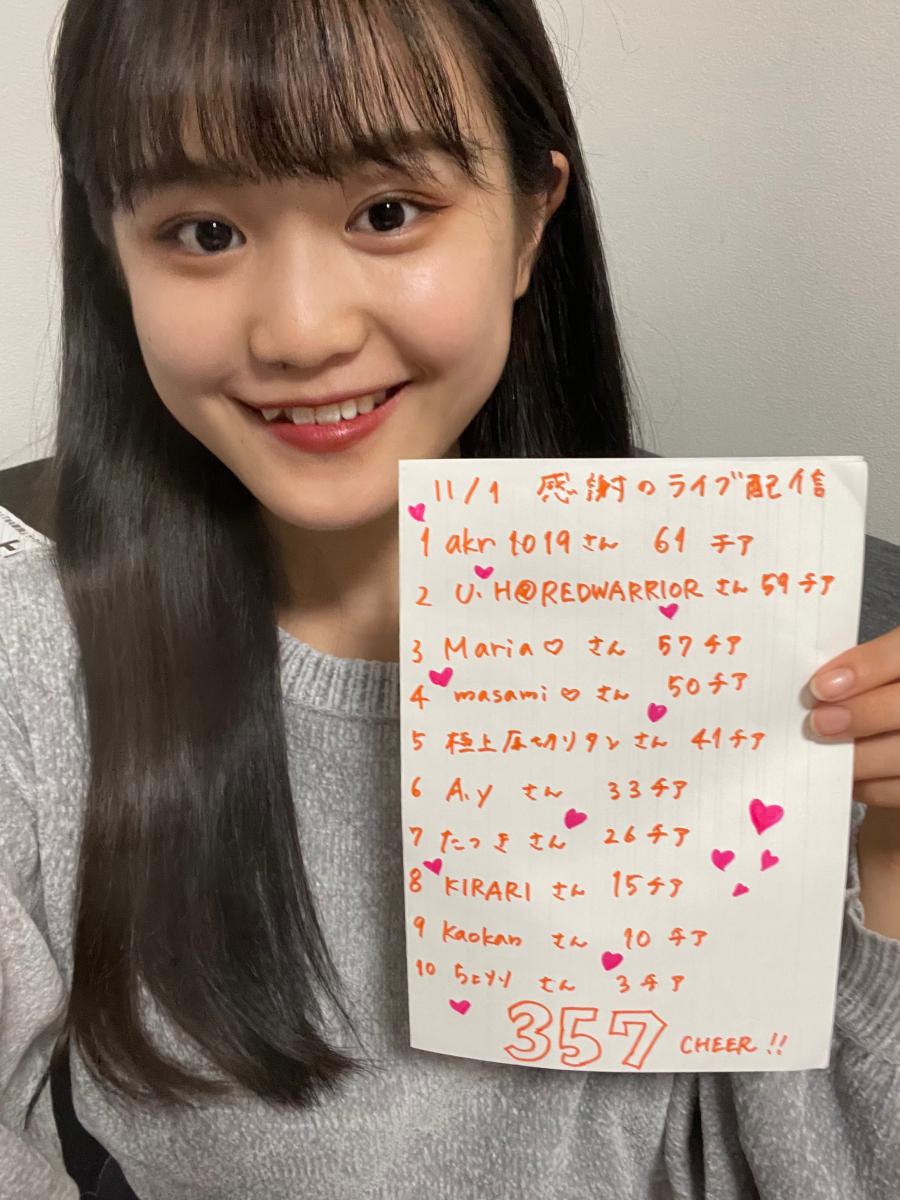 11/1 感謝のライブ配信
1 akr to19さん 61 チア
2 U.H@REDWARRIOR さん 59チア
3 Maria♡ さん 57チア
4 masami♡さん 50チア
5 極上厚切りタンさん 41チア
6 A.y さん 33チア
7 たつきさん 26チア
8 KIRARI さん 15チア
9 kaokan さん 10チア
10 さん 3チア
357 CHEER!!